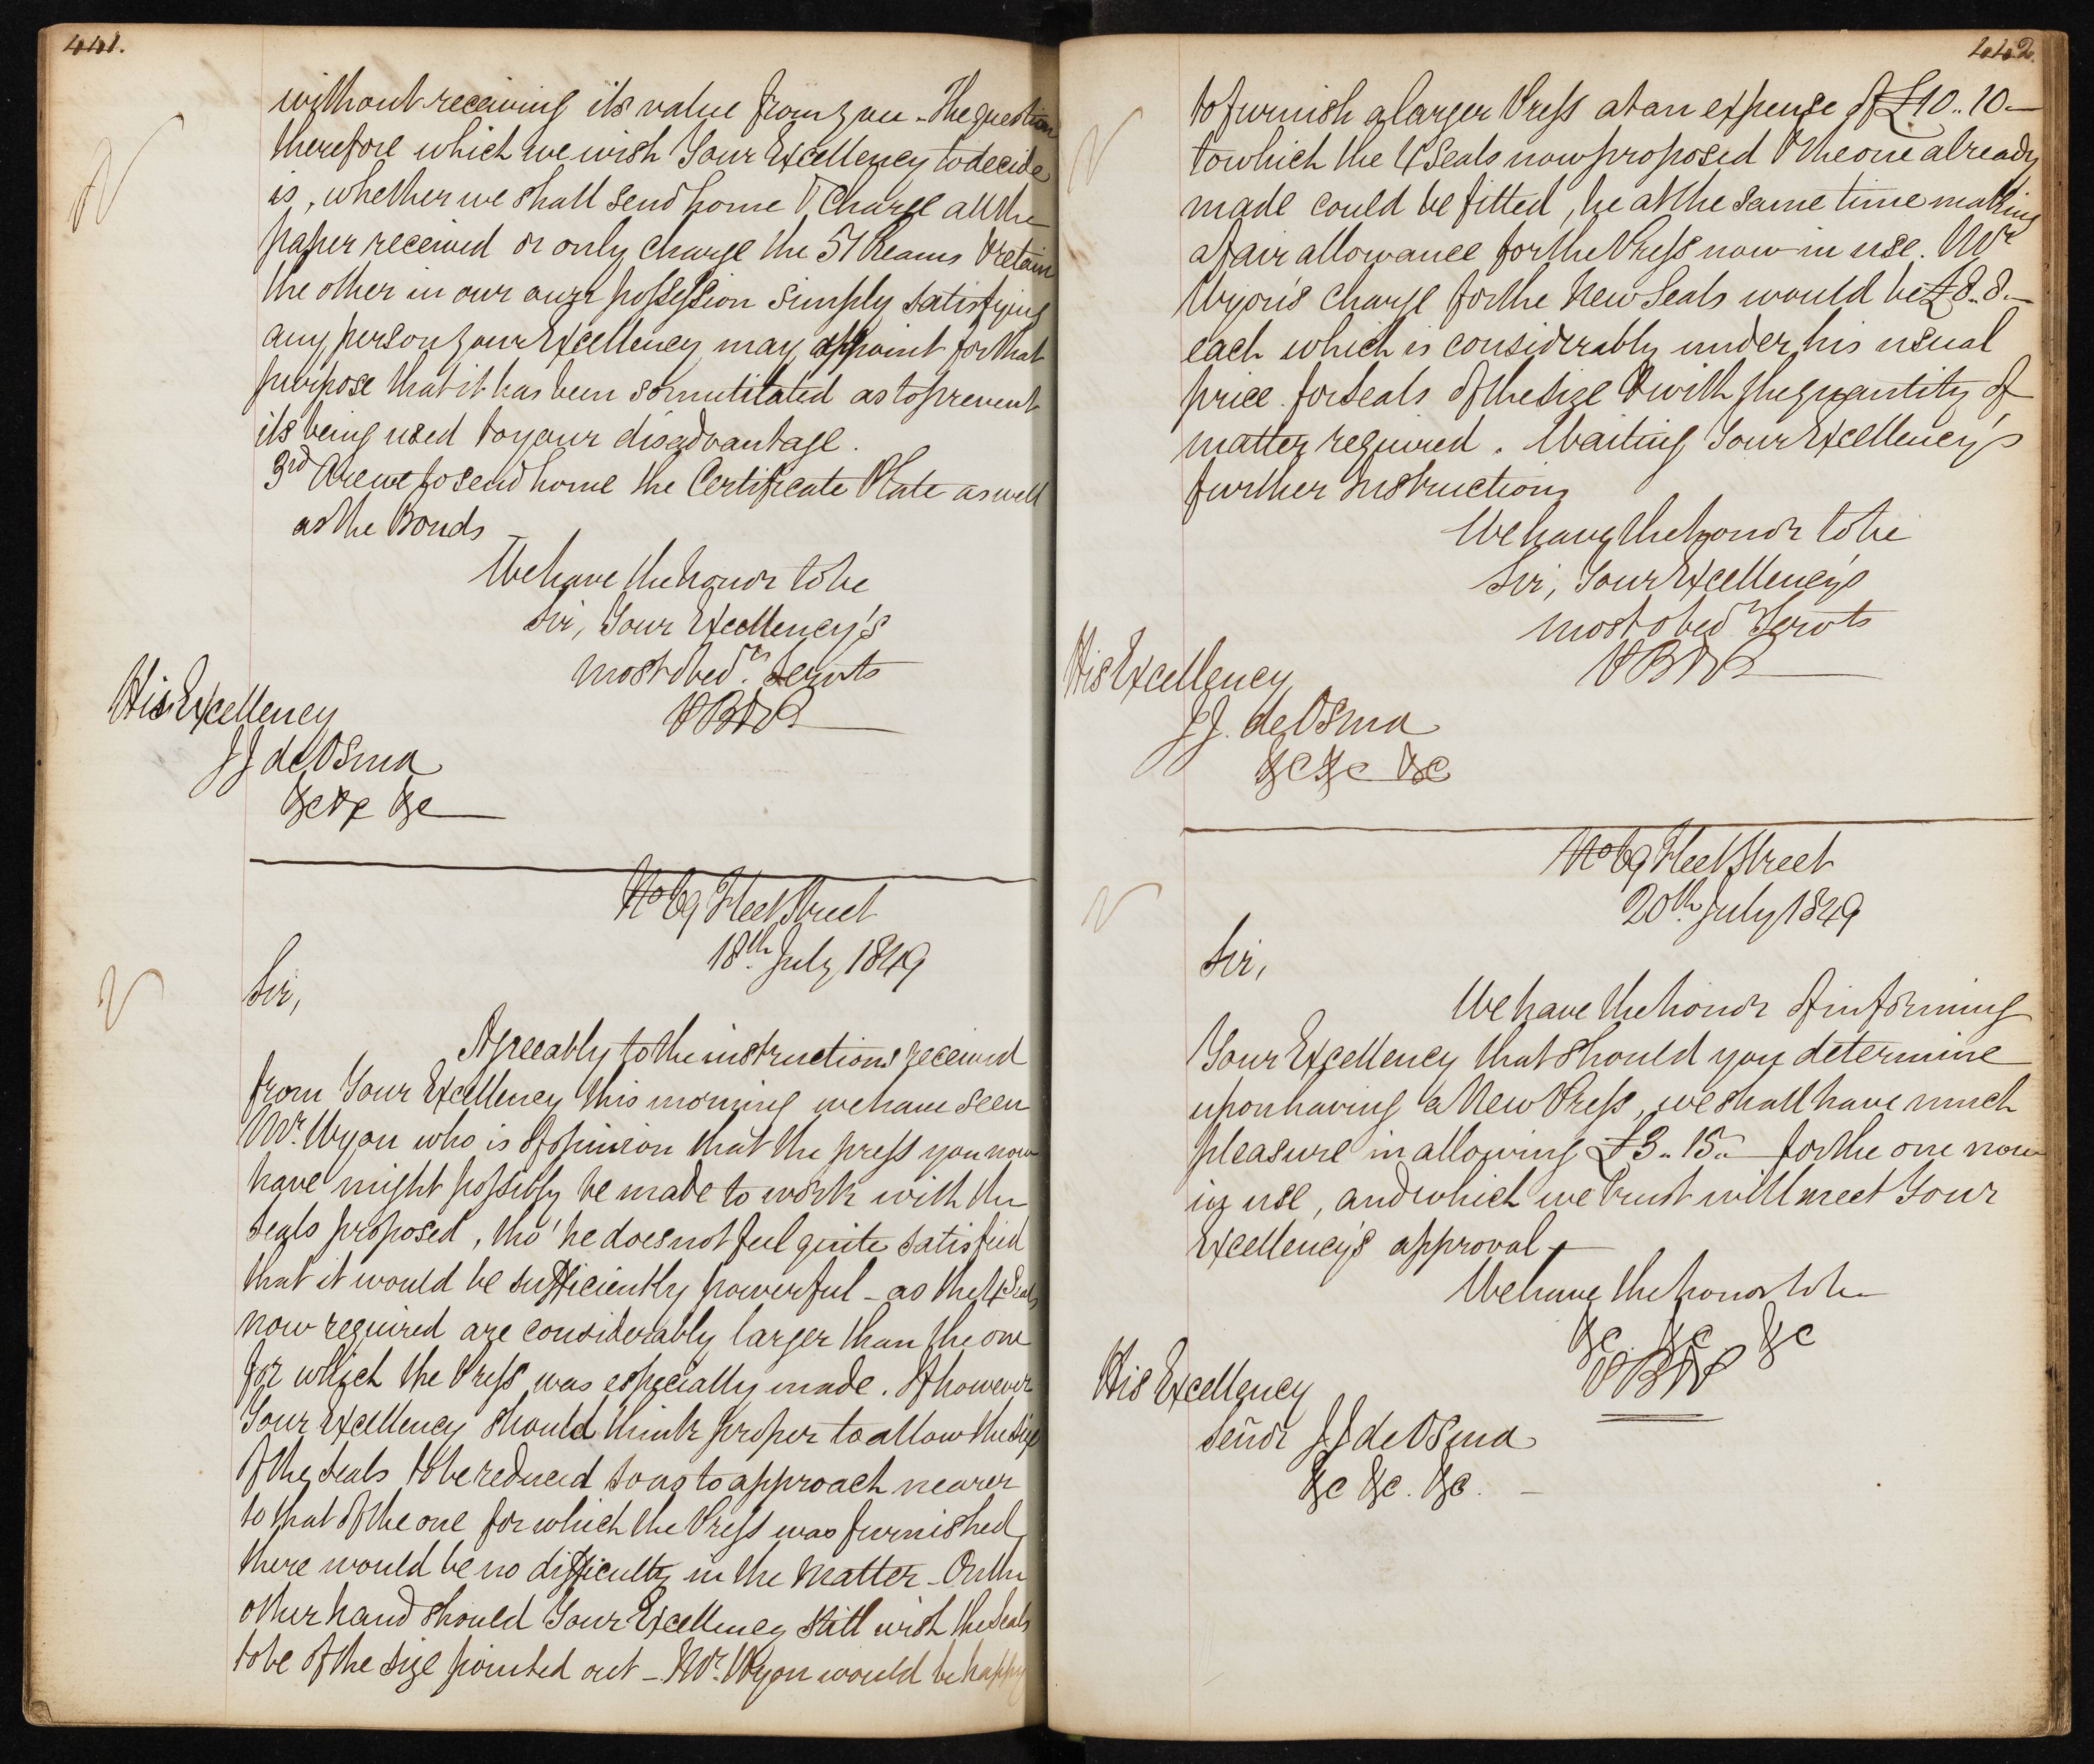 441.
without receiving its value from you - The question
therefore which we wish Your Excellency to decide
is, whether we shall send home & charge all the
paper received or only charge the 51 Reams & retain
the other in our own possession simply satisfying
any person your Excellency may appoint for that
purpose that it has been so mutilated as to prevent
its being used to your disadvantage.
3rd Are we to send home the Certificate Plate as well
as the Bonds -
We have the honor to be
Sir, Your Excellency's
most obedt. Servts
PB&P
His Excellency
J J de Osma
&c &c &c
No 69 Fleet Street
18th. July 1849
Sir,
Agreeably to the instructions received
from Your Excellency this morning we have seen
Mr. Wyon who is of opinion that the press you now
have might possibly be made to work with the
seals proposed, tho' he does not feel quite satisfied
that it would be sufficiently powerful - as the 4 Seals
now required are considerably larger than the one
for which the Press was especially made. If however
Your Excellency should think proper to allow the size
of the seals to be reduced so as to approach nearer
to that of the one for which the Press was furnished,
there would be no difficulty in the matter - On the
other hand should Your Excellency still wish the Seals
to be of the size pointed out - Mr. Wyon would be happy
442.
to furnish a larger Press at an expense of £10..10 -
to which the 4 Seals now proposed & the one already
made could be fitted, he at the same time making
a fair allowance for the Press now in use. Mr
Wyon's charge for the New Seals would be £8..8. -
each which is considerably under his usual
price for seals of the size & with the quantity of
matter required. Waiting Your Excellency's
further instructions
We have the honor to be
Sir, Your Excellency's
most obedt Servts
PB&P
His Excellency
J J. de Osma
&c &c &c
No 69 Fleet Street
20th. July 1849
Sir,
We have the honor of informing
Your Excellency that should you determine
upon having a New Press, we shall have much
pleasure in allowing £3..15.. - for the one now
in use, and which we trust will meet Your
Excellency's approval -
We have the honor to be
&c &c &c
PB&P
His Excellency
Señor J J de Osma
&c &c. &c. -